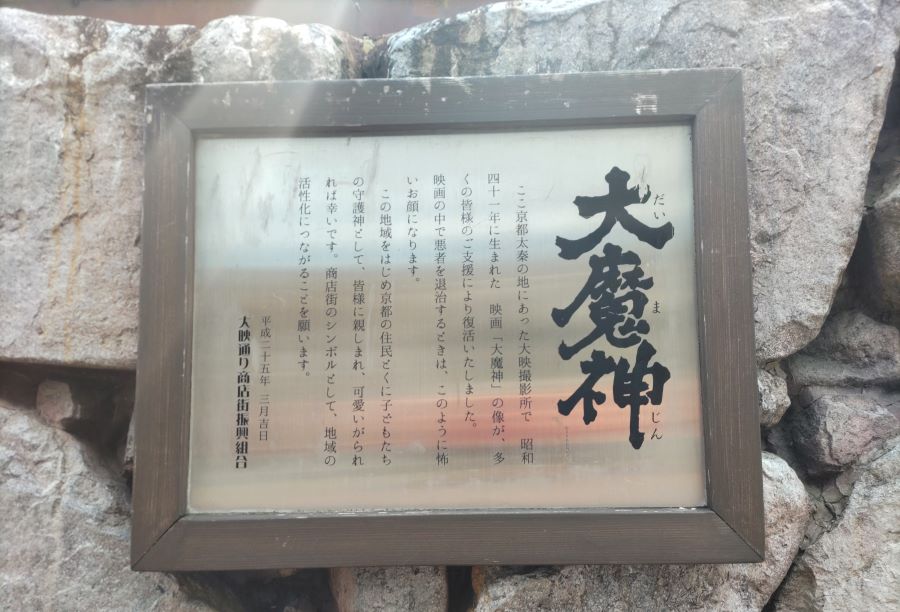 大魔神
だい ま じん
ここ京都太秦の地にあった大映撮影所で 昭和
四十一年に生まれた 映画「大魔神」の像が、多
くの皆様のご支援により復活いたしました。
映画の中で悪者を退治するときは、このように怖
いお顔になります。
この地域をはじめ京都の住民とくに子どもたち
の守護神として、皆様に親しまれ、可愛いがられ
れば幸いです。商店街のシンボルとして、地域の
活性化につながることを願います。
平成二十五年 三月吉日
大映通り商店街振興組合